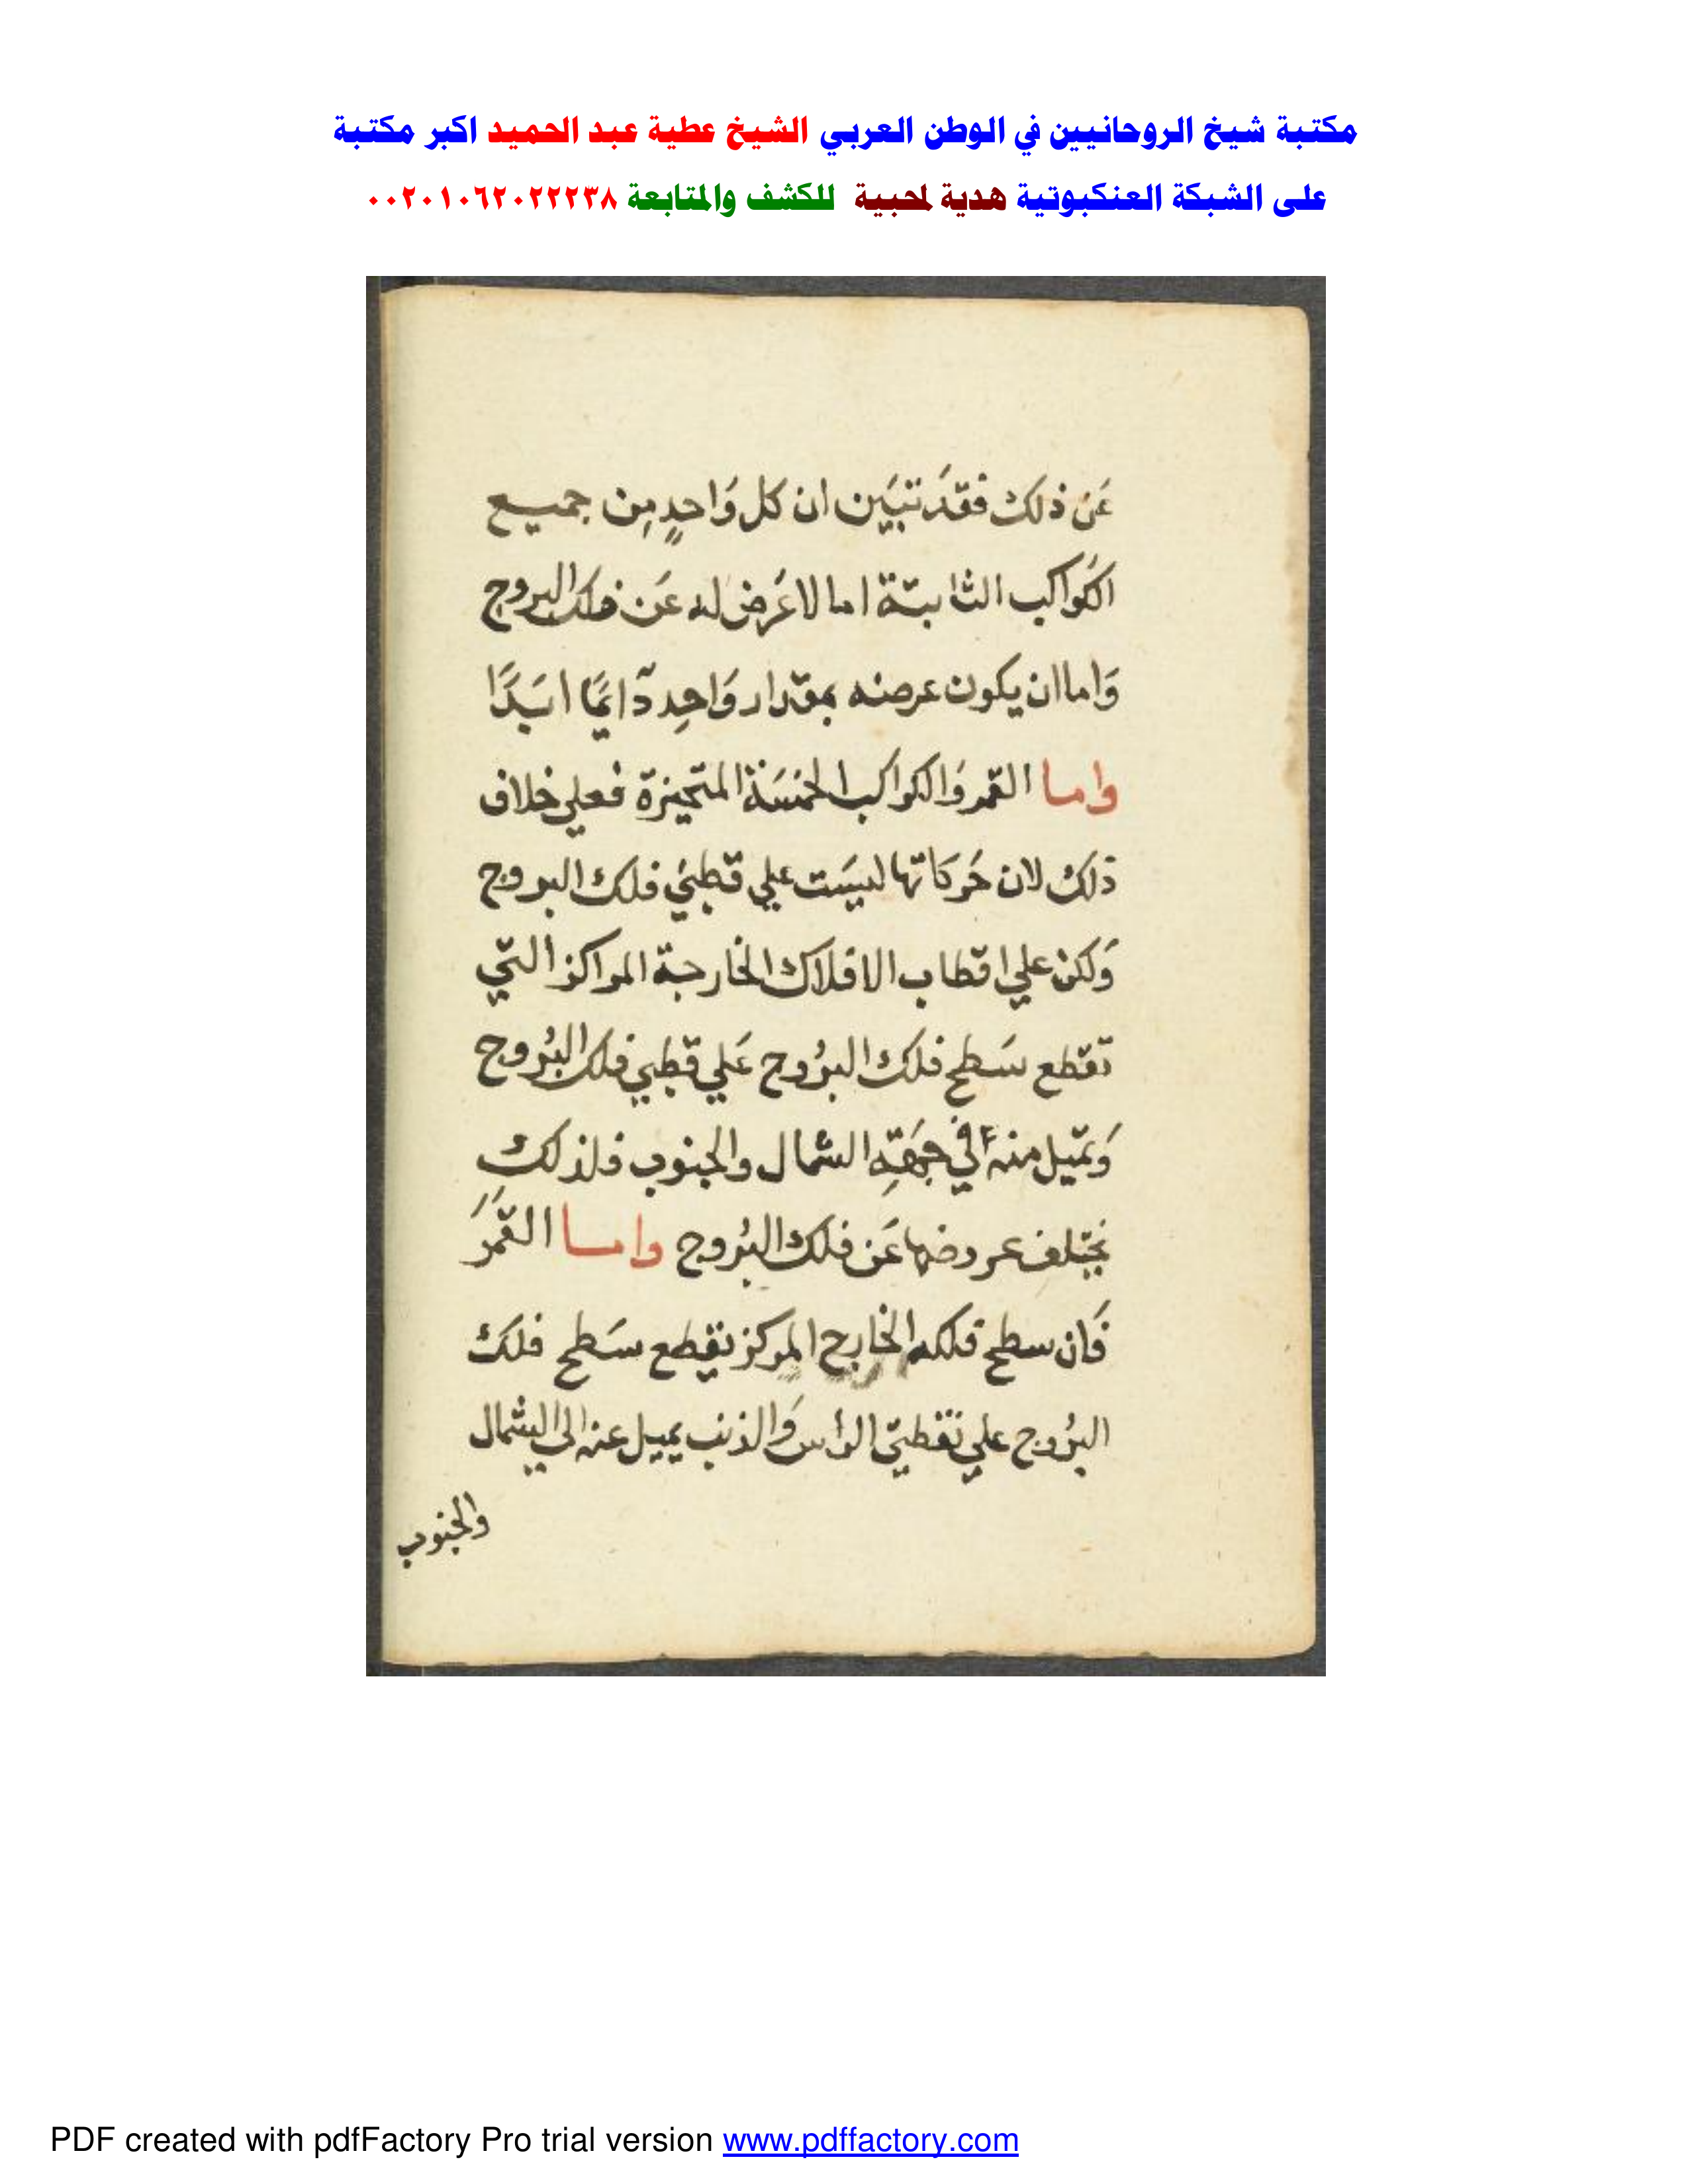 مكتبة شيخ الروحانيين في الوطن العربي الشيخ عطية عبد الحميد اكبر مكتبة
على الشبكة العنكبوتية هدية لمحبية للكشف والمتابعة ٠٠٢٠١٠٦٢٠٢٢٢٣٨
عَن ذلك فقدَ تبيَن ان كل وَاحدٍ مِن جميع
الكَواكب الثابتة اما لا عَرض له عَن فلك البروج
وَاما ان يكون عرضه بمقدار وَاحِد دَائمًا ابَدًا
واما القمر وَالكواكب الخمسَة المتحيزة فعلي خلاف
ذلك لان حَركاتها ليسَت علي قطبَي فلك البروج
وَلكن علي اقطاب الافلاك الخارجة المراكز التي
تقطع سَطح فلك البرُوج عَلي قطبي فلك البرُوج
وَتميل منه في جهَتِه الشمال والجنوب فلذلك
يختلف عروضها عَن فلك البرُوج واما القمَر
فَان سطح فلكه الخارج المركز يقطع سَطح فلك
البرُوج علي نقطتي الراس وَالذنب يميل عنه الي الشمال
والجنوب
PDF created with pdfFactory Pro trial version www.pdffactory.com